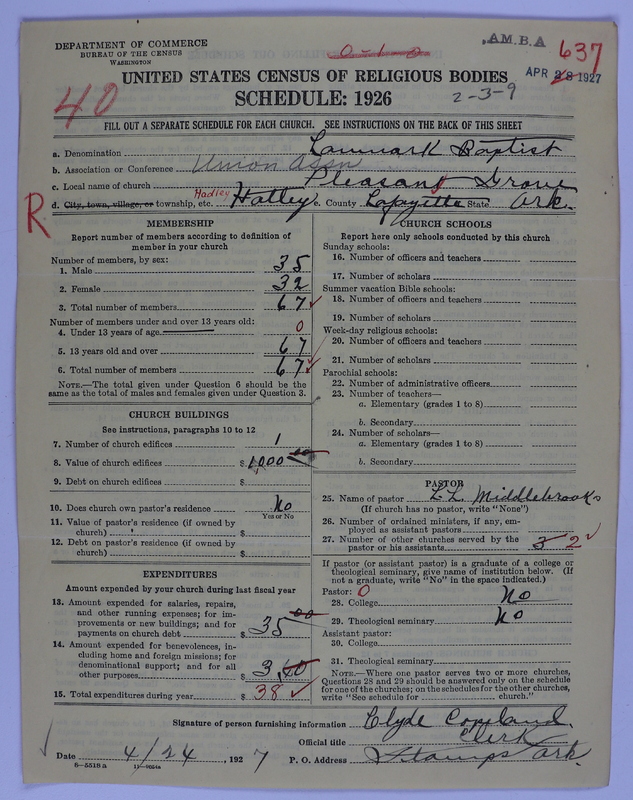 DEPARTMENT OF COMMERCE
BUREAU OF THE CENSUS
WASHINGTON
A.M.B.A
637
APR 28 1927
UNITED STATES CENSUS OF RELIGIOUS BODIES
40
SCHEDULE: 1926
2-3-9
FILL OUT A SEPARATE SCHEDULE FOR EACH CHURCH. SEE INSTRUCTIONS ON THE BACK OF THIS SHEET
a. Denomination Lanmark Baptist
b. Association or Conference Union Assn
c. Local name of church Pleasant Grove
d. City, town, village, or township, etc. Hadley Hatley e. County Lafayette State Ark.
R
MEMBERSHIP
Report number of members according to definition of
member in your church
Number of members, by sex:
1. Male 35
2. Female 32
3. Total number of members 67
Number of members under and over 13 years old:
4. Under 13 years of age 0
5. 13 years old and over 67
6. Total number of members 67
NOTE.—The total given under Question 6 should be the
same as the total of males and females given under Question 3.
CHURCH BUILDINGS
See instructions, paragraphs 10 to 12
7. Number of church edifices 1
8. Value of church edifices $ 1,000 00
9. Debt on church edifices $
10. Does church own pastor's residence No
Yes or No
11. Value of pastor's residence (if owned by
church) $
12. Debt on pastor's residence (if owned by
church) $
EXPENDITURES
Amount expended by your church during last fiscal year
13. Amount expended for salaries, repairs,
and other running expenses; for im-
provements or new buildings; and for
payments on church debt $ 35 00
14. Amount expended for benevolences, in-
cluding home and foreign missions; for
denominational support; and for all
other purposes 3.40
15. Total expenditures during year $ 38
CHURCH SCHOOLS
Report here only schools conducted by this church
Sunday schools:
16. Number of officers and teachers
17. Number of scholars
Summer vacation Bible schools:
18. Number of officers and teachers
19. Number of scholars
Week-day religious schools:
20. Number of officers and teachers
21. Number of scholars
Parochial schools:
22. Number of administrative officers
23. Number of teachers—
a. Elementary (grades 1 to 8)
b. Secondary
24. Number of scholars—
a. Elementary (grades 1 to 8)
b. Secondary
PASTOR
25. Name of pastor L.L. Middlebrooks
(If church has no pastor, write "None")
26. Number of ordained ministers, if any, em-
ployed as assistant pastors
27. Number of other churches served by the
pastor or his assistants 3 2
If pastor (or assistant pastor) is a graduate of a college or
theological seminary, give name of institution below. (If
not a graduate, write "No" in the space indicated.)
Pastor: 0
28. College No
29. Theological seminary No
Assistant pastor:
30. College
31. Theological seminary
NOTE.—Where one pastor serves two or more churches,
Questions 28 and 29 should be answered only on the schedule
for one of the churches; on the schedules for the other churches,
write "See schedule for church."
Signature of person furnishing information Clyde Copeland
Official title Clerk
Date 4/24, 1927 P. O. Address Stamps Ark.
8-5518 a